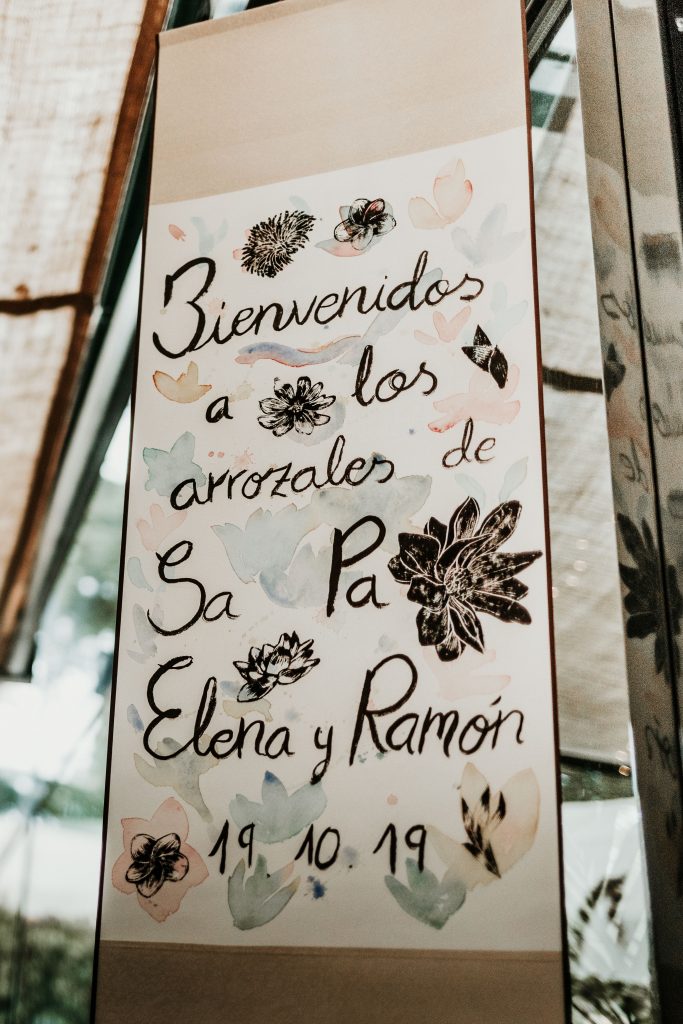 Bienvenidos
a los
arrozales de
Sa Pa
Elena y Ramón
19.10.19